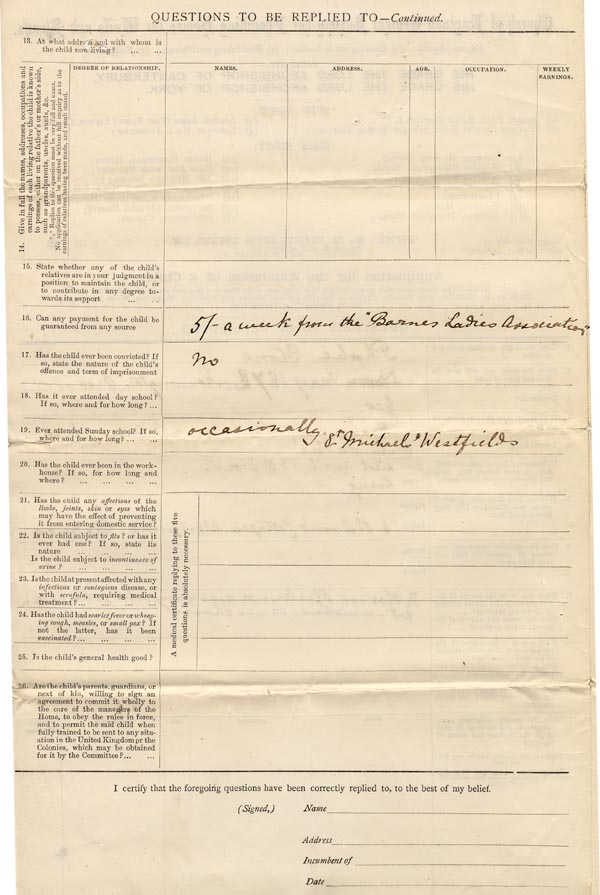 QUESTIONS TO BE REPLIED TO—Continued.
13. At what address and with whom is
the child now living? ... ...
14. Give in full the names, addresses, occupations and
earnings of each living relative the child is known
to possess, either on the father's or mother's side,
such as grandparents, uncles, aunts, &c.
*** Replies to this question must be very full and exact.
No application can be received without full enquiry as to the
earnings of relatives having been made, and result stated.
DEGREE OF RELATIONSHIP.
NAMES.
ADDRESS.
AGE.
OCCUPATION.
WEEKLY
EARNINGS.
15. State whether any of the child's
relatives are in your judgment in a
position to maintain the child, or
to contribute in any degree to-
wards its support ... ...
16. Can any payment for the child be
guaranteed from any source
5/- a week from the "Barnes Ladies Association"
17. Has the child ever been convicted? If
so, state the nature of the child's
offence and term of imprisonment
No
18. Has it ever attended day school?
If so, where and for how long? ...
19. Ever attended Sunday school? If so,
where and for how long? ... ...
occasionally St. Michael's Westfields
20. Has the child ever been in the work-
house? If so, for how long and
where? ... ... ... ...
21. Has the child any affections of the
limbs, joints, skin or eyes which
may have the effect of preventing
it from entering domestic service?
22. Is the child subject to fits? or has it
ever had one? If so, state its
nature ... ... ... ...
Is the child subject to incontinence of
urine? ... ... ... ...
23. Is the child at present affected with any
infectious or contagious disease, or
with scrofula, requiring medical
treatment? ... ... ... ...
24. Has the child had scarlet fever or whoop-
ing cough, measles, or small pox? If
not the latter, has it been
vaccinated? ... ... ... ...
25. Is the child's general health good?
A medical certificate replying to these five
questions is absolutely necessary.
26. Are the child's parents, guardians, or
next of kin, willing to sign an
agreement to commit it wholly to
the care of the managers of the
Home, to obey the rules in force,
and to permit the said child when
fully trained to be sent to any situ-
ation in the United Kingdom or the
Colonies, which may be obtained
for it by the Committee? ... ...
I certify that the foregoing questions have been correctly replied to, to the best of my belief.
(Signed,) Name
Address
Incumbent of
Date